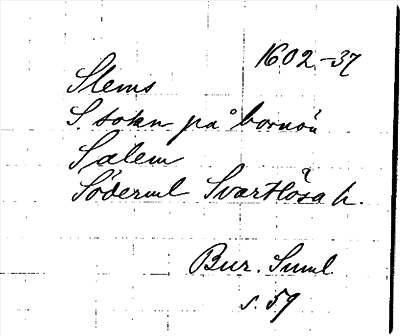 1602-37
Slems
S. sokn på
Salem
Söderml Svartlösa h.
Bur. Suml.
s. 59